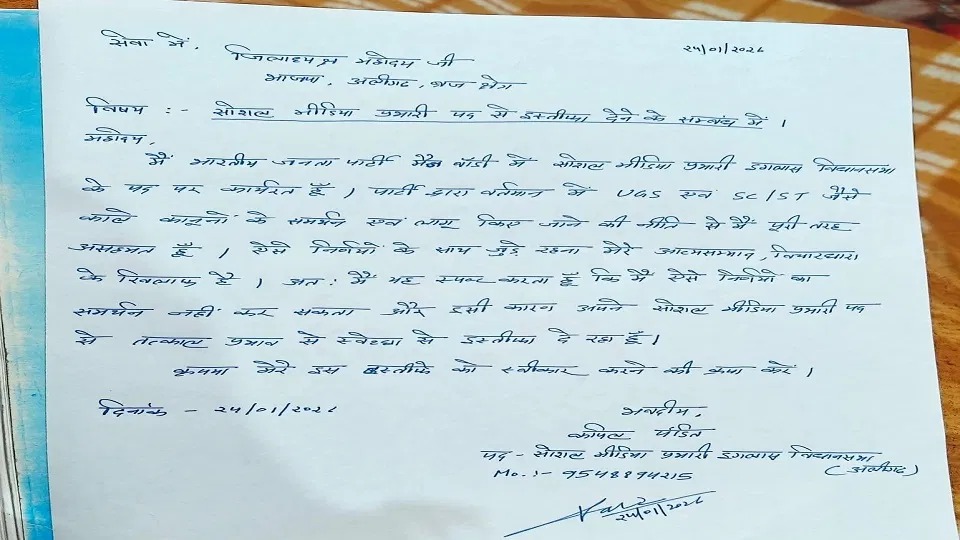 सेवा में,
24/01/2026
जिलाध्यक्ष महोदय जी
भाजपा, अलीगढ़, ब्रज क्षेत्र
विषय :- सोशल मीडिया प्रभारी पद से इस्तीफा देने के सम्बंध में ।
महोदय,
मैं भारतीय जनता पार्टी मैन बॉडी में सोशल मीडिया प्रभारी इगलास विधानसभा
के पद पर कार्यरत हूँ । पार्टी द्वारा वर्तमान में UGS एवं SC/ST जैसे
काले कानूनों के समर्थन एवं लागू किए जाने की नीति से मैं पूरी तरह
असहमत हूँ । ऐसे निर्णयों के साथ जुड़े रहना मेरे आत्मसम्मान, विचारधारा
के खिलाफ है । अत: मैं यह स्पष्ट करता हूँ कि मैं ऐसे निर्णयो का
समर्थन नहीं कर सकता और इसी कारण अपने सोशल मीडिया प्रभारी पद
से तत्काल प्रभाव से स्वेच्छा से इस्तीफा दे रहा हूँ ।
कृपया मेरे इस इस्तीफे को स्वीकार करने की कृपा करें ।
दिनांक - 24/01/2026
भवदीय,
कपिल पंडित
पद - सोशल मीडिया प्रभारी इगलास विधानसभा
(अलीगढ़)
Mo. :- 9548894215
24/01/2026